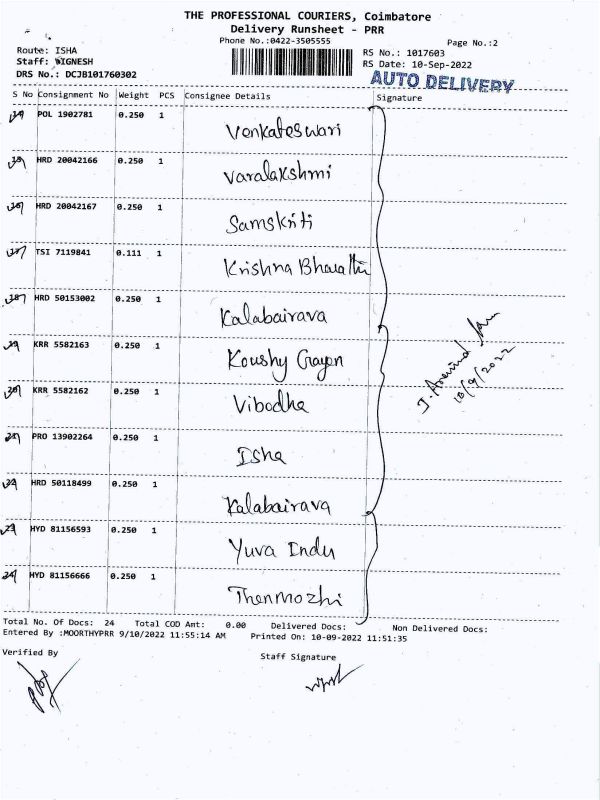 THE PROFESSIONAL COURIERS, Coimbatore
Delivery Runsheet - PRR
Phone No.:0422-3505555
Page No.:2
Route: ISHA
RS No.: 1017603
Staff: VIGNESH
RS Date: 10-Sep-2022
DRS No.: DCJB101760302
AUTO DELIVERY
S No Consignment No Weight PCS Consignee Details Signature
14 POL 1902781 0.250 1 Venkateswari
15 HRD 20042166 0.250 1 Varalakshmi
16 HRD 20042167 0.250 1 Samskriti
17 TSI 7119841 0.111 1 Krishna Bharathi
18 HRD 50153002 0.250 1 Kalabairava
19 KRR 5582163 0.250 1 Koushy Grayen
20 KRR 5582162 0.250 1 Vibodha
J. Aravind
10/9/2022
21 PRO 13902264 0.250 1 Isha
22 HRD 50118499 0.250 1 Kalabairava
23 HYD 81156593 0.250 1 Yuva Indu
24 HYD 81156666 0.250 1 Thenmozhi
Total No. Of Docs: 24 Total COD Amt: 0.00 Delivered Docs: Non Delivered Docs:
Entered By :MOORTHYPRR 9/10/2022 11:55:14 AM Printed On: 10-09-2022 11:51:35
Verified By
Staff Signature